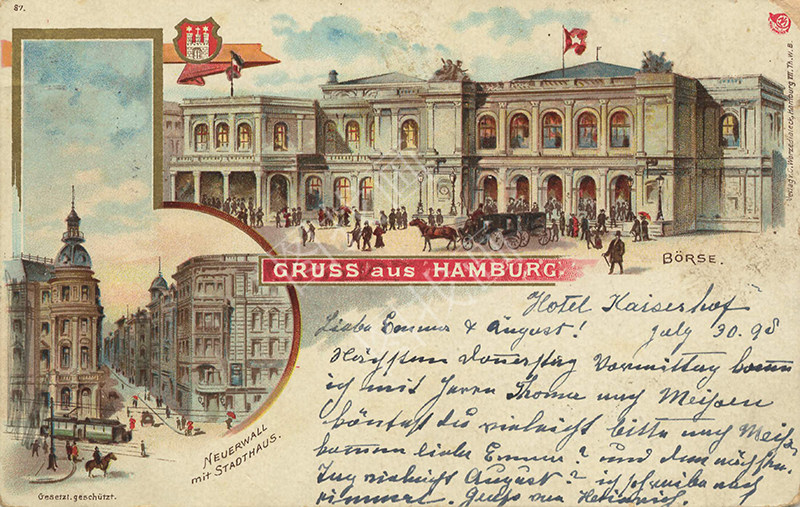 87.
GRUSS aus HAMBURG
BÖRSE.
NEUERWALL
mit STADTHAUS.
Generzl. geschützt.
Hotel Kaiserhof
Liebe Emma & August! July 30. 98
Nächsten Donerstag Vormittag komm
ich mit Herrn Thoma nach Meißen
könntest du vielleicht bitte nach
kommen liebe Emma? und dem nächsten
Tag vielleicht August? ich schreibe noch
Gruss von Heinrich.